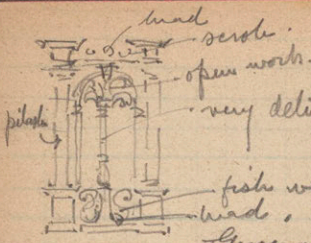 head
scrole.
open work.
very deli
pilaste
fish w
head.